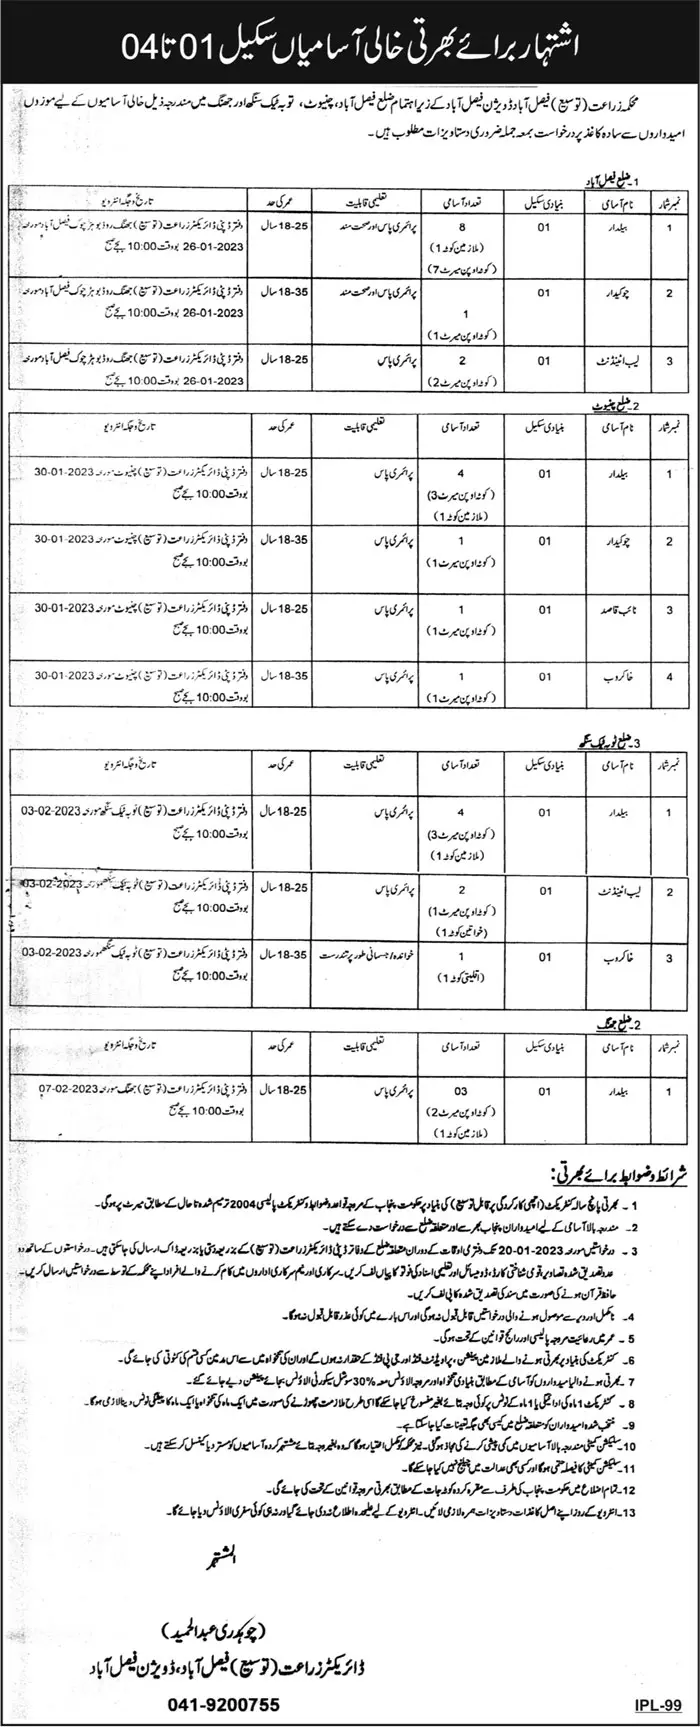 اشتہار برائے بھرتی خالی آسامیاں سکیل 01 تا 04
محکمہ زراعت (توسیع) فیصل آباد ڈویژن فیصل آباد کے زیر اہتمام ضلع فیصل آباد، چنیوٹ، ٹوبہ ٹیک سنگھ اور جھنگ میں مندرجہ ذیل خالی آسامیوں کے لیے موزوں
امیدواروں سے سادہ کاغذ پر درخواست بمعہ جملہ ضروری دستاویزات مطلوب ہیں۔
1۔ ضلع فیصل آباد
نمبر شمار نام آسامی بنیادی سکیل تعداد آسامی تعلیمی قابلیت عمر کی حد تاریخ و جگہ انٹرویو
1 بیلدار 01 8 پرائمری پاس اور صحت مند 18-25 سال دفتر ڈپٹی ڈائریکٹر زراعت (توسیع) جھنگ روڈ بوہڑ چوک فیصل آباد مورخہ
(ملازمین کوٹہ 1) 26-01-2023 بوقت 10:00 بجے صبح
(کوٹہ اوپن میرٹ 7)
2 چوکیدار 01 1 پرائمری پاس اور صحت مند 18-35 سال دفتر ڈپٹی ڈائریکٹر زراعت (توسیع) جھنگ روڈ بوہڑ چوک فیصل آباد مورخہ
(کوٹہ اوپن میرٹ 1) 26-01-2023 بوقت 10:00 بجے صبح
3 لیب اٹینڈنٹ 01 2 پرائمری پاس 18-25 سال دفتر ڈپٹی ڈائریکٹر زراعت (توسیع) جھنگ روڈ بوہڑ چوک فیصل آباد مورخہ
(کوٹہ اوپن میرٹ 2) 26-01-2023 بوقت 10:00 بجے صبح
2۔ ضلع چنیوٹ
نمبر شمار نام آسامی بنیادی سکیل تعداد آسامی تعلیمی قابلیت عمر کی حد تاریخ و جگہ انٹرویو
1 بیلدار 01 4 پرائمری پاس 18-25 سال دفتر ڈپٹی ڈائریکٹر زراعت (توسیع) چنیوٹ مورخہ 30-01-2023
(کوٹہ اوپن میرٹ 3) بوقت 10:00 بجے صبح
(ملازمین کوٹہ 1)
2 چوکیدار 01 1 پرائمری پاس 18-35 سال دفتر ڈپٹی ڈائریکٹر زراعت (توسیع) چنیوٹ مورخہ 30-01-2023
(کوٹہ اوپن میرٹ 1) بوقت 10:00 بجے صبح
3 نائب قاصد 01 1 پرائمری پاس 18-25 سال دفتر ڈپٹی ڈائریکٹر زراعت (توسیع) چنیوٹ مورخہ 30-01-2023
(کوٹہ اوپن میرٹ 1) بوقت 10:00 بجے صبح
4 خاکروب 01 1 پرائمری پاس 18-35 سال دفتر ڈپٹی ڈائریکٹر زراعت (توسیع) چنیوٹ مورخہ 30-01-2023
(کوٹہ اوپن میرٹ 1) بوقت 10:00 بجے صبح
3۔ ضلع ٹوبہ ٹیک سنگھ
نمبر شمار نام آسامی بنیادی سکیل تعداد آسامی تعلیمی قابلیت عمر کی حد تاریخ و جگہ انٹرویو
1 بیلدار 01 4 پرائمری پاس 18-25 سال دفتر ڈپٹی ڈائریکٹر زراعت (توسیع) ٹوبہ ٹیک سنگھ مورخہ 03-02-2023
(کوٹہ اوپن میرٹ 3) بوقت 10:00 بجے صبح
(ملازمین کوٹہ 1)
2 لیب اٹینڈنٹ 01 2 پرائمری پاس 18-25 سال دفتر ڈپٹی ڈائریکٹر زراعت (توسیع) ٹوبہ ٹیک سنگھ مورخہ 03-02-2023
(کوٹہ اوپن میرٹ 1) بوقت 10:00 بجے صبح
(خواتین کوٹہ 1)
3 خاکروب 01 1 خواندہ / جسمانی طور پر تندرست 18-35 سال دفتر ڈپٹی ڈائریکٹر زراعت (توسیع) ٹوبہ ٹیک سنگھ مورخہ 03-02-2023
(اقلیتی کوٹہ 1) بوقت 10:00 بجے صبح
2۔ ضلع جھنگ
نمبر شمار نام آسامی بنیادی سکیل تعداد آسامی تعلیمی قابلیت عمر کی حد تاریخ و جگہ انٹرویو
1 بیلدار 01 03 پرائمری پاس 18-25 سال دفتر ڈپٹی ڈائریکٹر زراعت (توسیع) جھنگ مورخہ 07-02-2023
(کوٹہ اوپن میرٹ 2) بوقت 10:00 بجے صبح
(ملازمین کوٹہ 1)
شرائط و ضوابط برائے بھرتی:
1۔ بھرتی پانچ سالہ کنٹریکٹ (اچھی کارکردگی پر قابل توسیع) کی بنیاد پر حکومت پنجاب کے مروجہ قواعد و ضوابط و کنٹریکٹ پالیسی 2004 ترمیم شدہ تا حال کے مطابق میرٹ پر ہوگی۔
2۔ مندرجہ بالا آسامی کے لیے امیدواران پنجاب بھر سے اور متعلقہ ضلع سے درخواست دے سکتے ہیں۔
3۔ درخواستیں مورخہ 20-01-2023 تک دفتری اوقات کے دوران متعلقہ ضلع کے دفاتر ڈپٹی ڈائریکٹر زراعت (توسیع) کے بذریعہ دستی یا بذریعہ ڈاک ارسال کی جاسکتی ہیں۔ درخواستوں کے ساتھ دو
عدد تصدیق شدہ تصاویر، قومی شناختی کارڈ، ڈومیسائل اور تعلیمی اسناد کی فوٹو کاپیاں لف کریں۔ سرکاری اور نیم سرکاری اداروں میں کام کرنے والے افراد اپنے محکمہ کے توسط سے درخواستیں ارسال کریں۔
حافظ قرآن ہونے کی صورت میں سند کی تصدیق شدہ کاپی لف کریں۔
4۔ نامکمل اور دیر سے موصول ہونے والی درخواستیں قابل قبول نہ ہوگی اور اس بارے میں کوئی عذر قابل قبول نہ ہوگا۔
5۔ عمر میں رعایت مروجہ پالیسی اور رائج قوانین کے تحت ہوگی۔
6۔ کنٹریکٹ کی بنیاد پر بھرتی ہونے والے ملازمین پینشن، پراویڈنٹ فنڈ اور جی پی فنڈ کے حقدار نہ ہوں گے اور ان کی تنخواہ میں سے اس مد میں کسی قسم کی کٹوتی کی جائے گی۔
7۔ بھرتی ہونے والے امیدواروں کو آسامی کے مطابق بنیادی تنخواہ اور مروجہ الاؤنس معہ 30% سوشل سیکورٹی الاؤنس بجائے پینشن دیے جائے گئے۔
8۔ کنٹریکٹ 1 ماہ کی ادائیگی یا 1 ماہ کے نوٹس پر کوئی وجہ بتائے بغیر منسوخ کیا جاسکے گا اسی طرح ملازمت چھوڑنے کی صورت میں ایک ماہ کی تنخواہ یا ایک ماہ کا پیشگی نوٹس دینا لازمی ہوگا۔
9۔ منتخب شدہ امیدواران کو متعلقہ ضلع میں کسی بھی جگہ تعینات کیا جاسکتا ہے۔
10۔ سلیکشن کمیٹی مندرجہ بالا آسامیوں میں کمی بیشی کرنے کی مجاز ہوگی۔ نیز محکمہ کو مکمل اختیار ہوگا کہ وہ بغیر وجہ بتائے مشتہر کردہ آسامیوں کو مسترد یا کینسل کرسکتے ہیں۔
11۔ سلیکشن کمیٹی کا فیصلہ حتمی ہوگا اور کسی بھی عدالت میں چیلنج نہیں کیا جاسکے گا۔
12۔ تمام اضلاع میں حکومت پنجاب کی طرف سے مقرر کردہ کوٹہ جات کے مطابق بھرتی مروجہ قوانین کے تحت کی جائے گی۔
13۔ انٹرویو کے روز اپنے اصل کاغذات دستاویزات ہمراہ لازمی لائیں۔ انٹرویو کے لیے علیحدہ اطلاع نہ دی جائے گی اور نہ ہی کوئی سفری الاؤنس دیا جائے گا۔
المشتہر
(چوہدری عبدالحمید)
ڈائریکٹر زراعت (توسیع) فیصل آباد، ڈویژن فیصل آباد
041-9200755
IPL-99